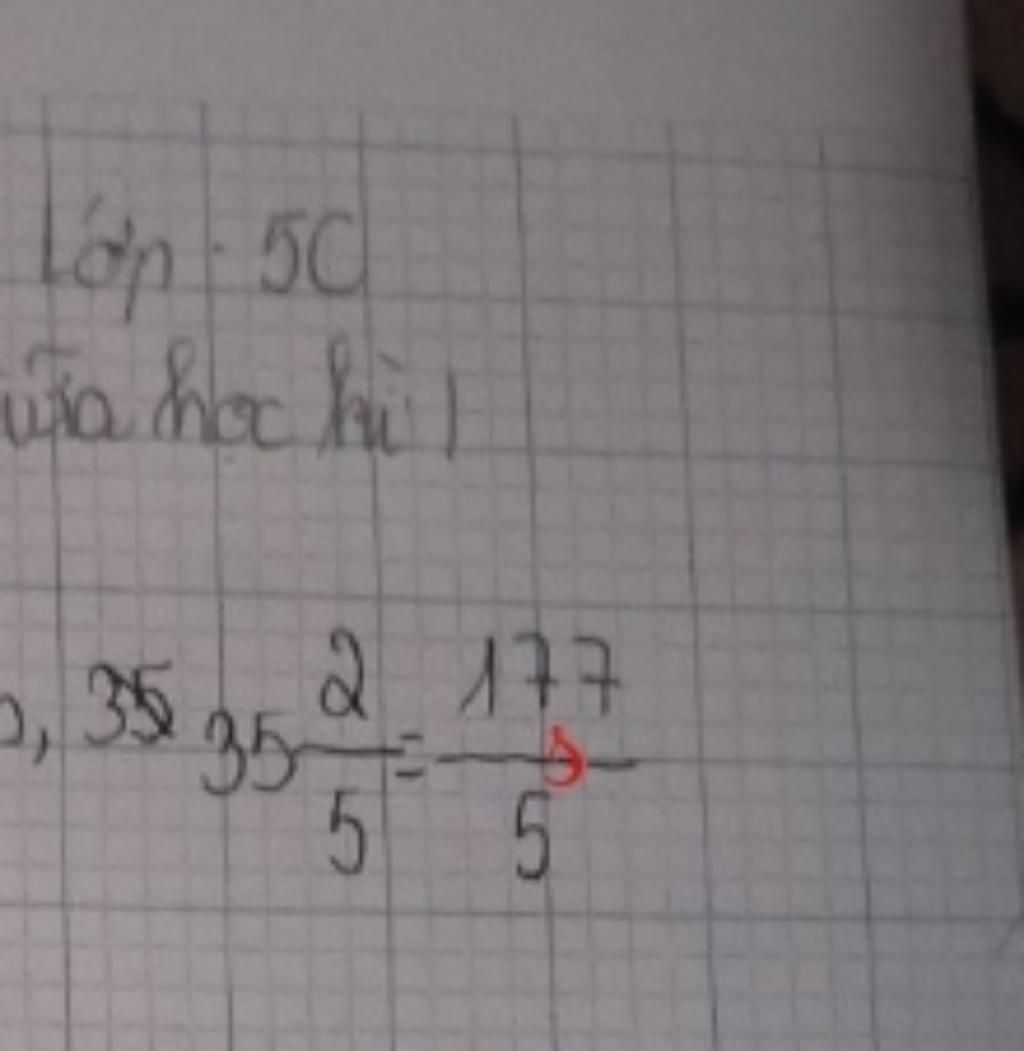 Lớp: 5C
ữa học kì 1
b, 35 35 2/5 = 177/5